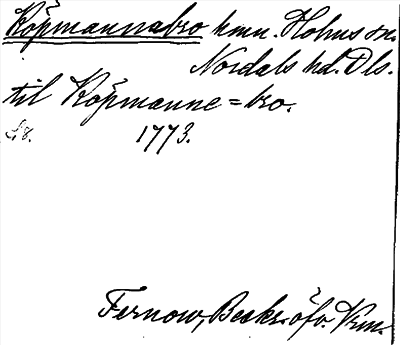 Köpmannabro hmn. Holms sn.
Nordals hd. Dls.
til Köpmanne=bro.
1773.
Fernow, Beskr. öfv. Vrm.